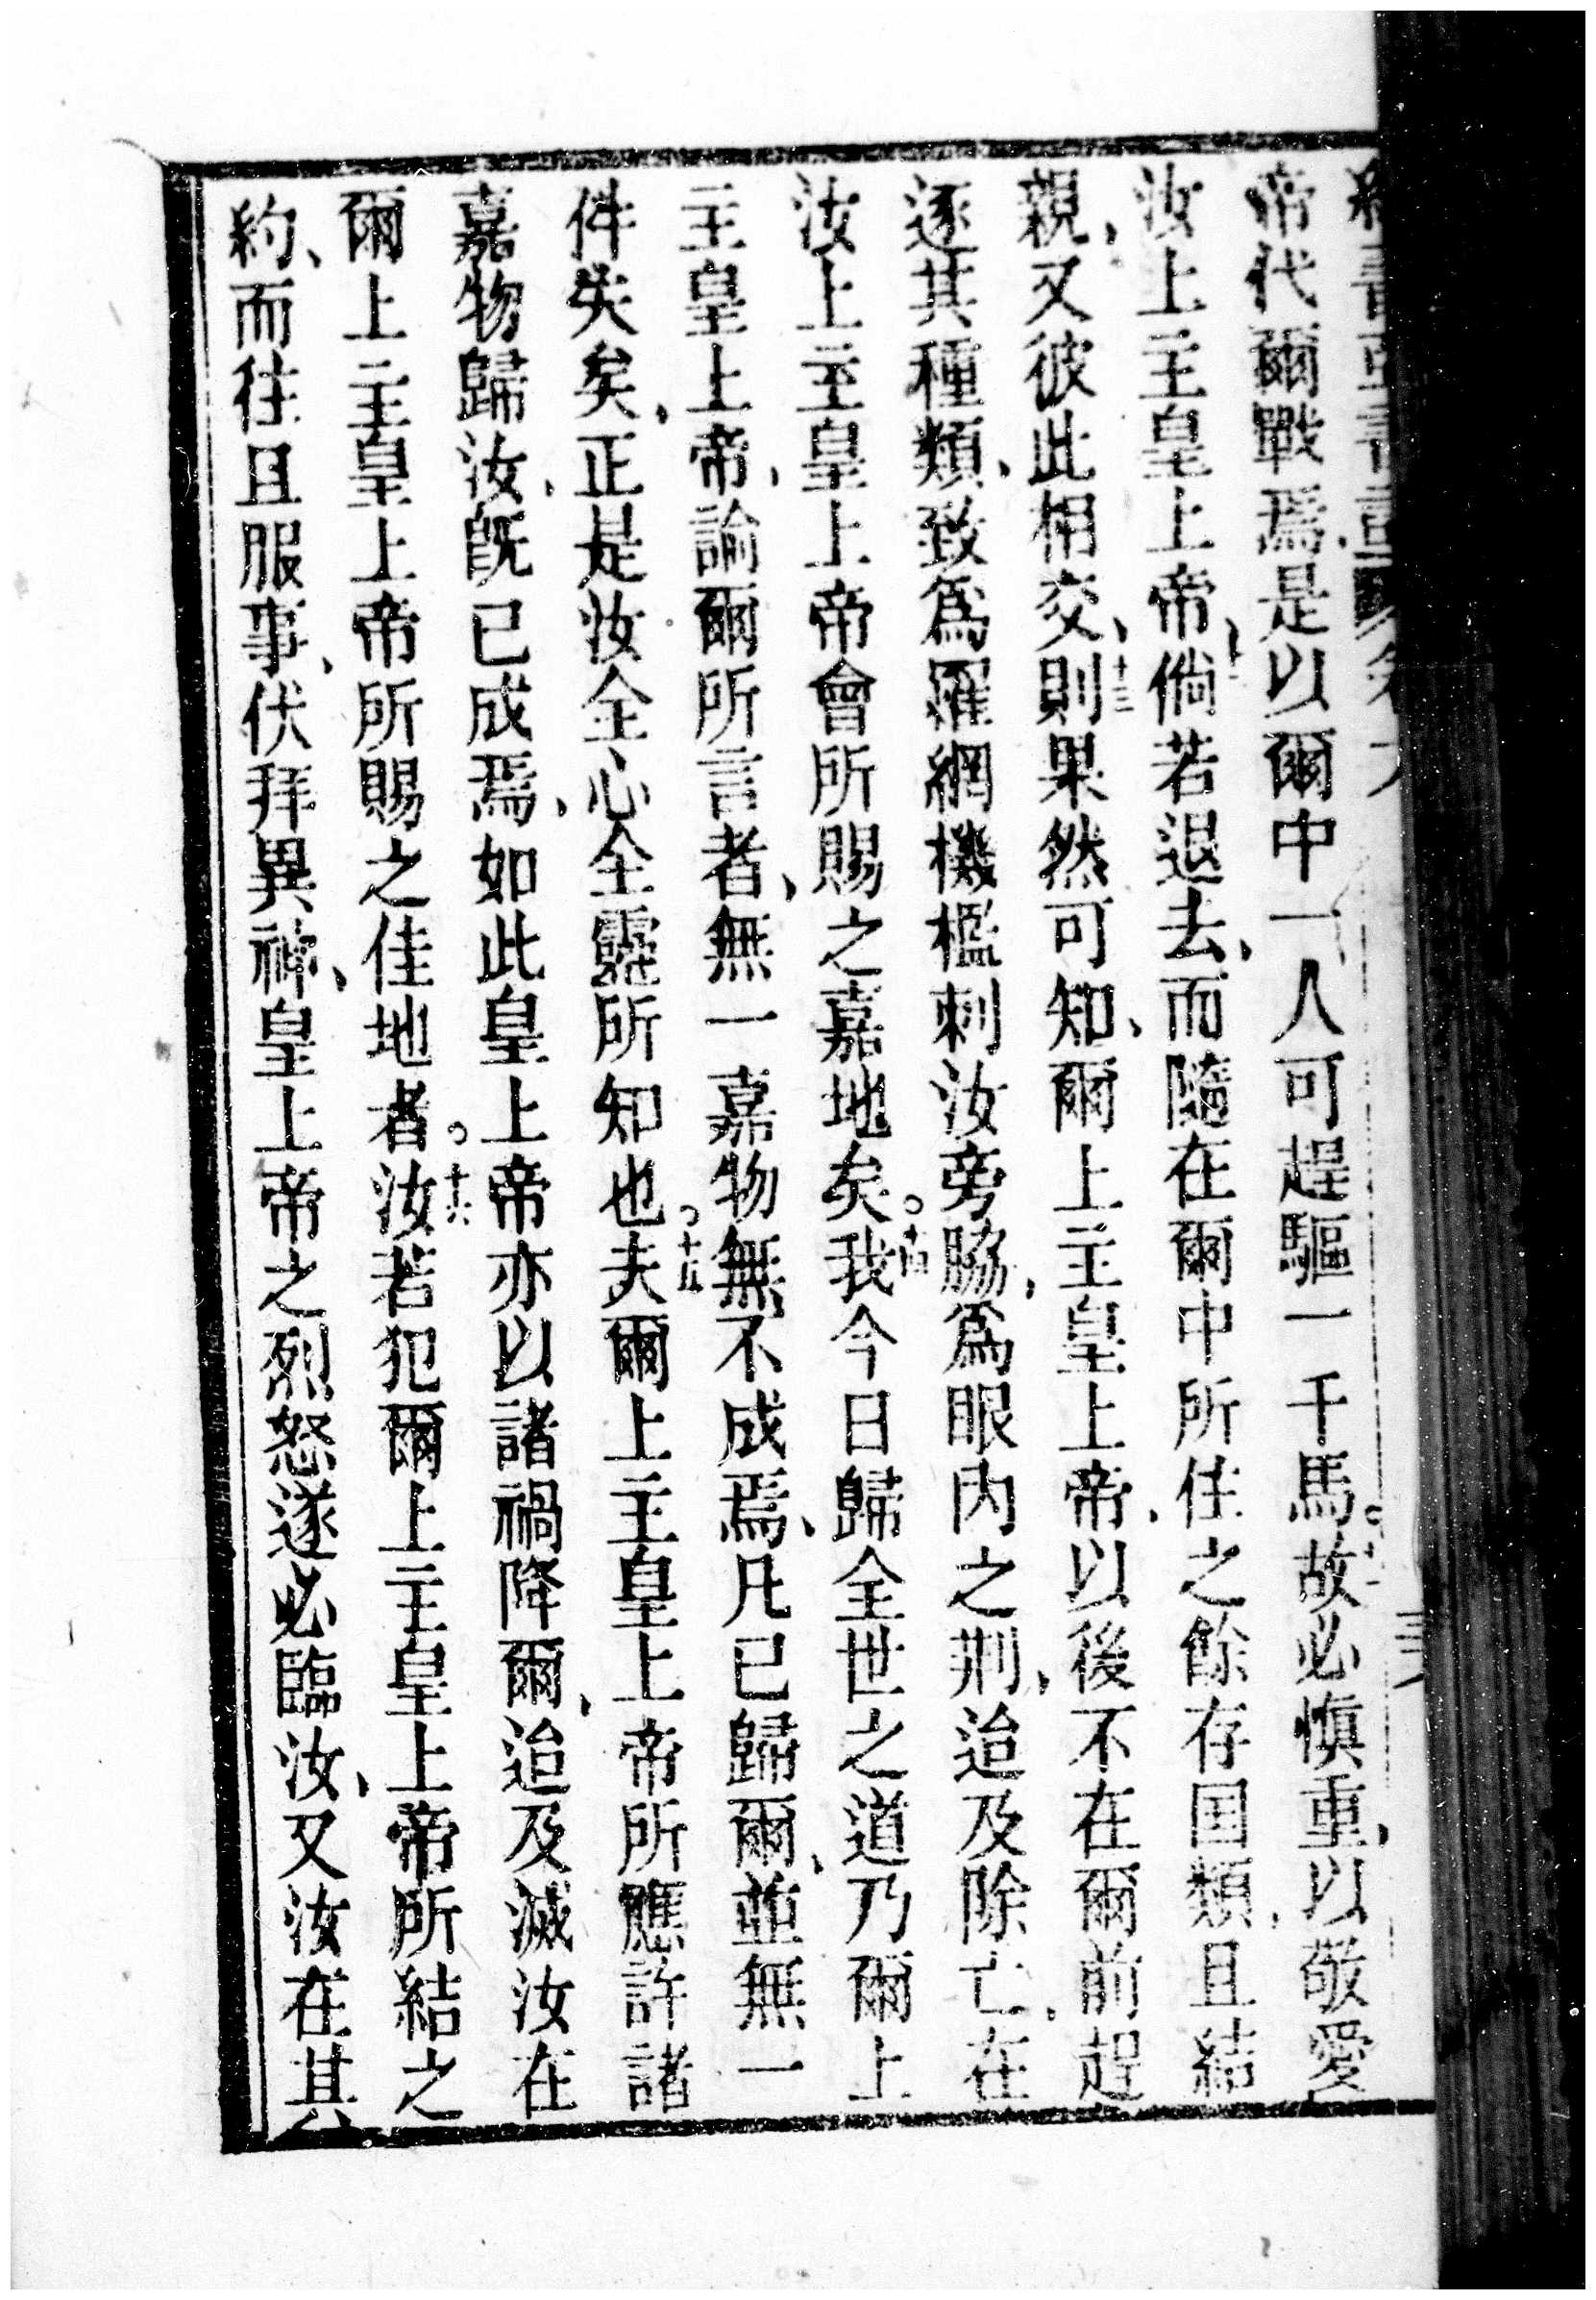 帝代爾戰焉、是以爾中一人可趕驅一千馬。故必慎重、以敬愛
汝上主皇上帝、十二倘若退去、而隨在爾中所住之餘存国類、且結
親、又彼此相交、十三則果然可知、爾上主皇上帝、以後不在爾前趕
逐其種類、致為羅網機檻刺汝旁脇、為眼內之荆、迨及除亡、在
汝上主皇上帝會所賜之嘉地矣。十四我今日歸全世之道乃爾上
主皇上帝、諭爾所言者、無一嘉物無不成焉、凡已歸爾、並無一
件失矣、正是汝全心全靈所知也。十五夫爾上主皇上帝所應許諸
嘉物歸汝、既已成焉、如此皇上帝亦以諸禍降爾、迨及滅汝在
爾上主皇上帝所賜之佳地者。十六汝若犯爾上主皇上帝所結之
約、而往且服事、伏拜異神、皇上帝之烈怒遂必臨汝、又汝在其